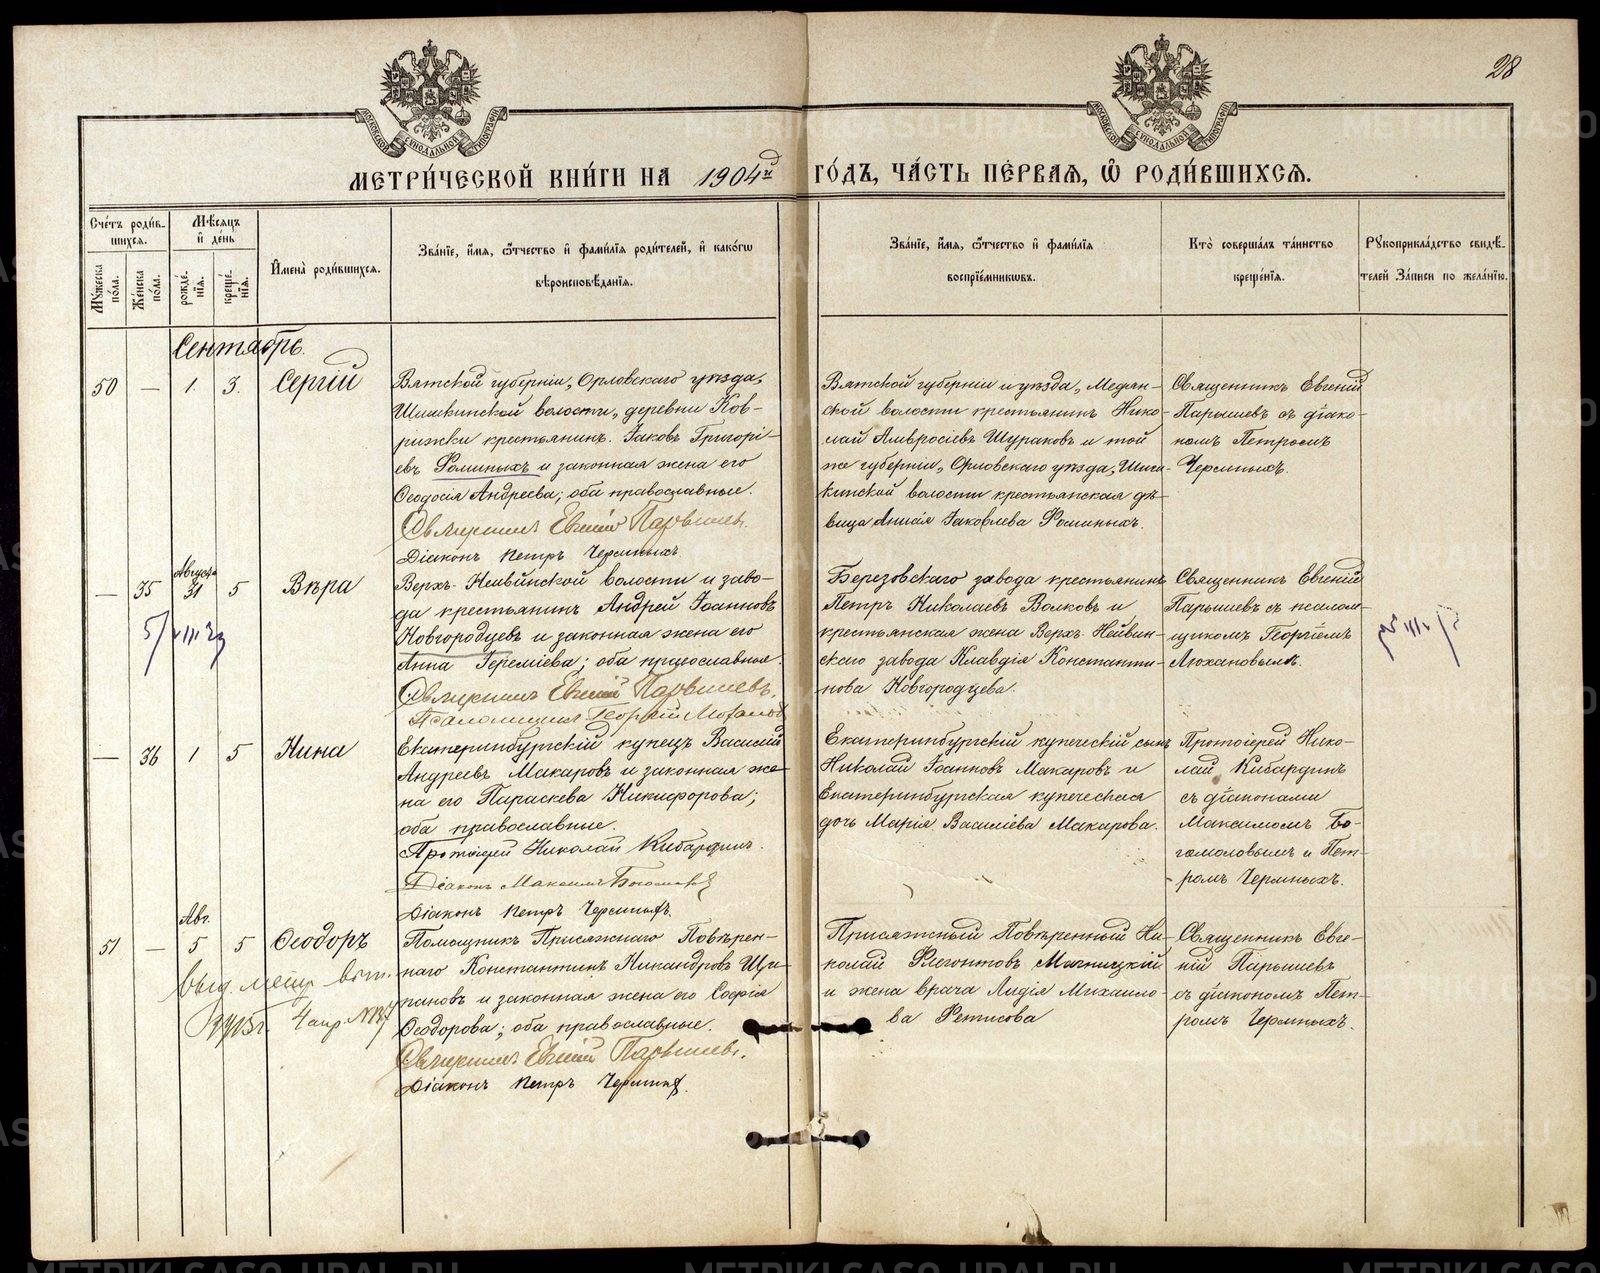 28
МЕТРИ́ЧЕСКОЙ КНИ́ГИ НА 1904й ГО́ДЪ, ЧА́СТЬ ПЕ́РВАѦ, Ѽ РОДИ́ВШИХСѦ.
Сче́тъ роди́в-
шихся.
Мѣ́сяцъ
и҆ де́нь
Мꙋ́жеска по́ла.
Же́нска по́ла.
рожде́-
нїя.
креще́-
нїя.
И҆мена̀ роди́вшихся.
Зва́нїе, и҆́мя, ѻ҆́тчество и҆ фами́лїя роди́телей, и҆ како́гѡ
вѣроисповѣ́данїя.
Зва́нїе, и҆́мя, ѻ҆́тчество и҆ фами́лїя
воспрїе́мникѡвъ.
Кто̀ соверша́лъ та́инство
креще́нїя.
Рꙋкоприкла́дство свидѣ́-
телей За́писи по жела́нїю.
Сентябрь.
50 — 1. 3. Сергій
Вятской губерніи, Орловскаго уѣзда,
Шишкинской волости, деревни Ков-
рижки крестьянинъ Іаковъ Григорі-
евъ Ѳоминыхъ и законная жена его
Ѳеодосія Андреева; оба православные.
Священникъ Евгеній Парышевъ.
Діаконъ Петръ Черемныхъ
Вятской губерніи и уѣзда, Медян-
ской волости крестьянинъ Нико-
лай Амвросіевъ Шураковъ и той
же губерніи, Орловскаго уѣзда, Шиш-
кинской волости крестьянская дѣ-
вица Анисія Іаковлева Ѳоминыхъ.
Священникъ Евгеній
Парышевъ съ діако-
номъ Петромъ
Черемныхъ.
— 35 Августа 31 5 Вѣра
Верхъ-Нейвинской волости и заво-
да крестьянинъ Андрей Іоанновъ
Новгородцевъ и законная жена его
Анна Іереміева; оба православные.
Священникъ Евгеній Парышевъ.
Псаломщикъ Георгій Люхановъ
Березовскаго завода крестьянинъ
Петръ Николаевъ Волковъ и
крестьянская жена Верхъ-Нейвин-
скаго завода Клавдія Константи-
нова Новгородцева.
Священникъ Евгеній
Парышевъ съ псалом-
щикомъ Георгіемъ
Люхановымъ.
— 36 1 5 Нина
Екатеринбургскій купецъ Василій
Андреевъ Макаровъ и законная же-
на его Параскева Никифорова;
оба православные.
Протоіерей Николай Кибардинъ.
Діаконъ Максимъ Богомоловъ
Діаконъ Петръ Черемныхъ.
Екатеринбургскій купеческій сынъ
Николай Іоанновъ Макаровъ и
Екатеринбургская купеческая
дочь Марія Василіева Макарова.
Протоіерей Нико-
лай Кибардинъ
съ діаконами
Максимомъ Бо-
гомоловымъ и Пет-
ромъ Черемныхъ.
51 — Авг. 5 5 Ѳеодоръ
выд. метр. вып.
1915г. 4 апр.
Помощникъ Присяжнаго Повѣрен-
наго Константинъ Никандровъ Щи-
пановъ и законная жена его Софія
Ѳеодорова; оба православные.
Священникъ Евгеній Парышевъ.
Діаконъ Петръ Черемныхъ.
Присяжный Повѣренный Ни-
колай Флегонтовъ Магницкій
и жена врача Лидія Михаило-
ва Фетисова
Священникъ Евге-
ній Парышевъ
съ діакономъ Пет-
ромъ Черемныхъ.